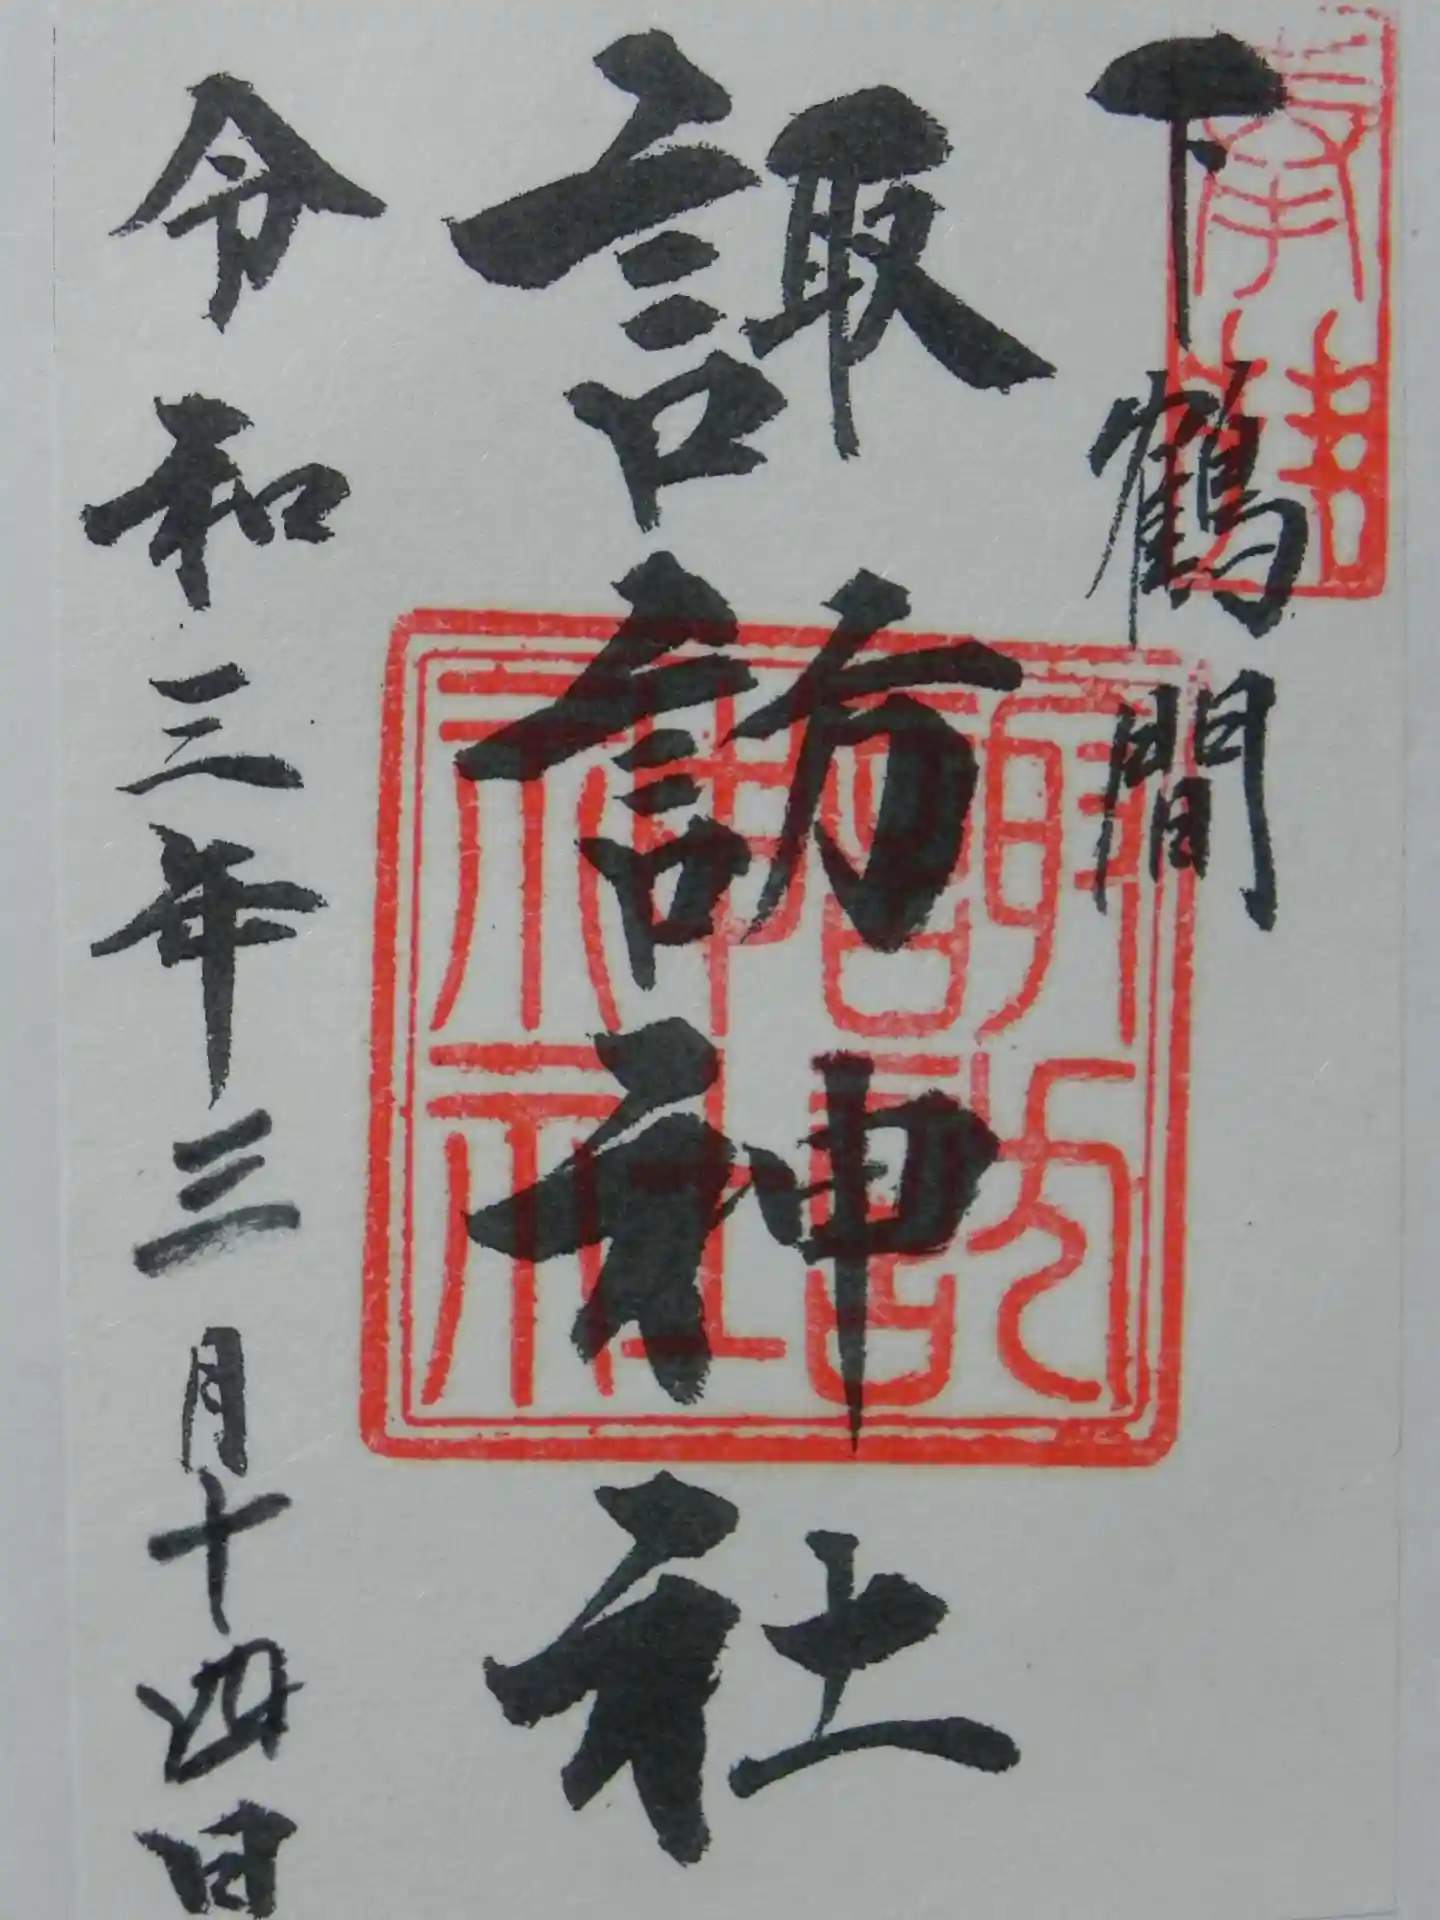 奉拝
下鶴間
諏訪神社
諏訪神社
令和三年三月十四日